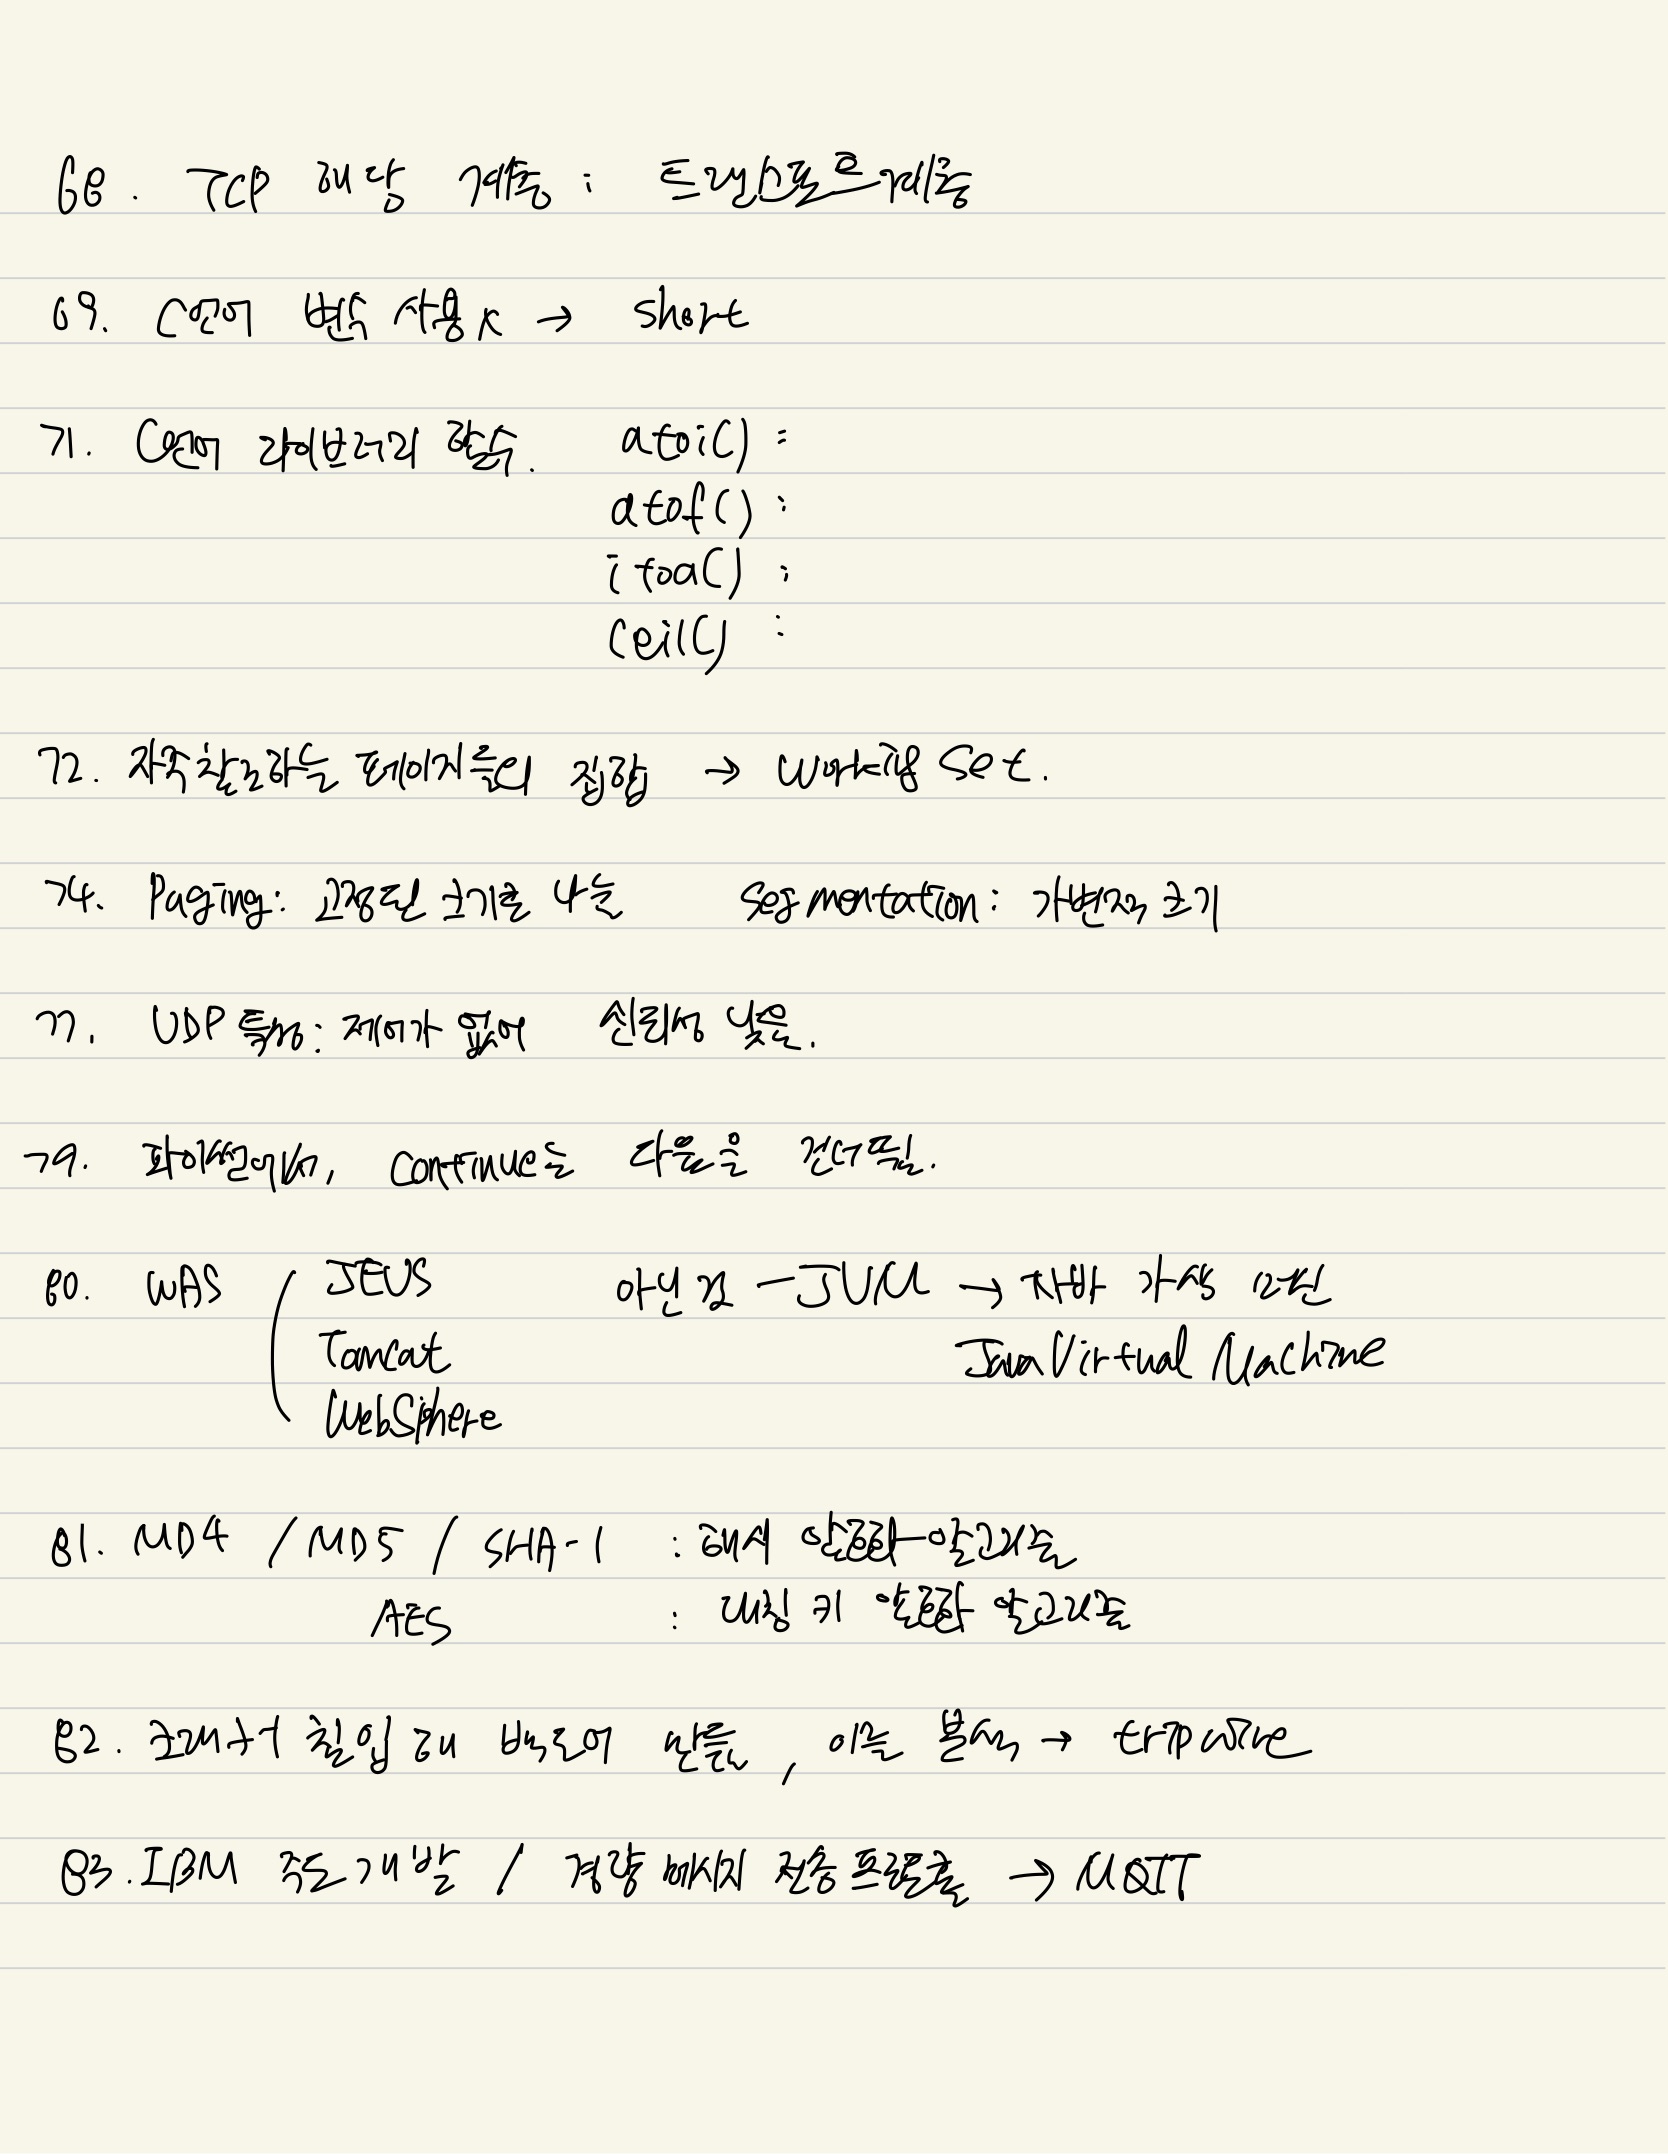 68. TCP 해당 계층 : 트랜스포트 계층
69. C언어 변수 사용 X → short
71. C언어 라이브러리 함수. atoi() :
atof() :
itoa() :
ceil() :
72. 자주 참조하는 페이지들의 집합 → working set.
74. Paging : 고정된 크기로 나눔 Segmentation : 가변적 크기
77. UDP 특징 : 제어가 없어 신뢰성 낮음.
79. 파이썬에서, continue는 다음을 건너뜀.
80. WAS JEUS 아닌 것 - JVM → 자바 가상 머신
Tomcat Java Virtual Machine
WebSphere
81. MD4 / MD5 / SHA-1 : 해시 암호화 알고리즘
AES : 대칭 키 암호화 알고리즘
82. 크래커 침입해 백도어 만듦, 이를 분석 → tripwire
83. IBM 주도 개발 / 경량 메시지 전송 프로토콜 → MQTT